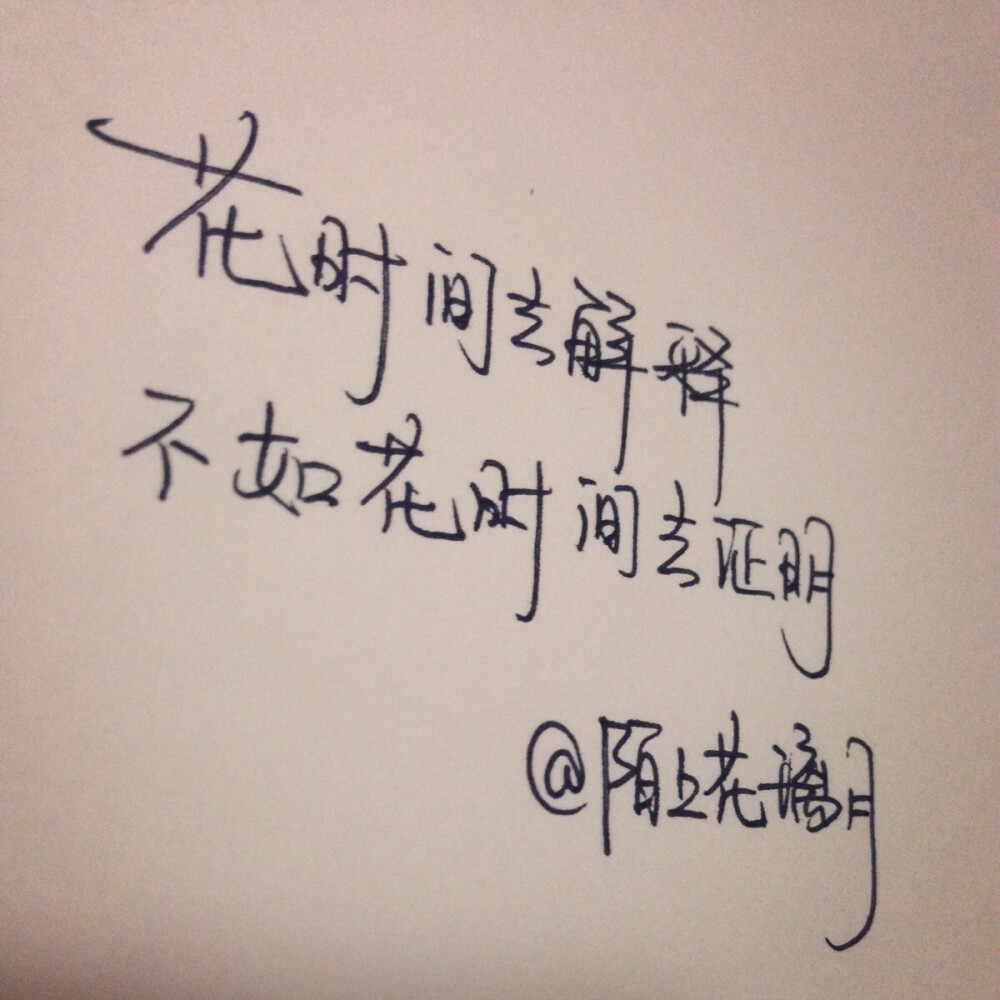 花时间去解释
不如花时间去证明
@陌上花漓月